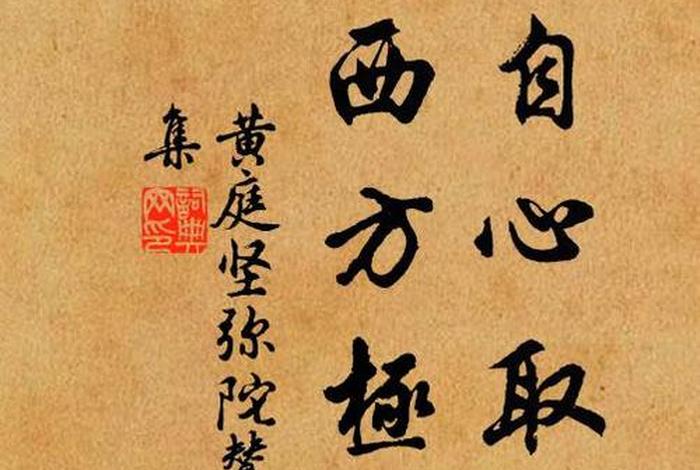 自心取
西方極
黄庭坚弥陀贊
集
詞典網印